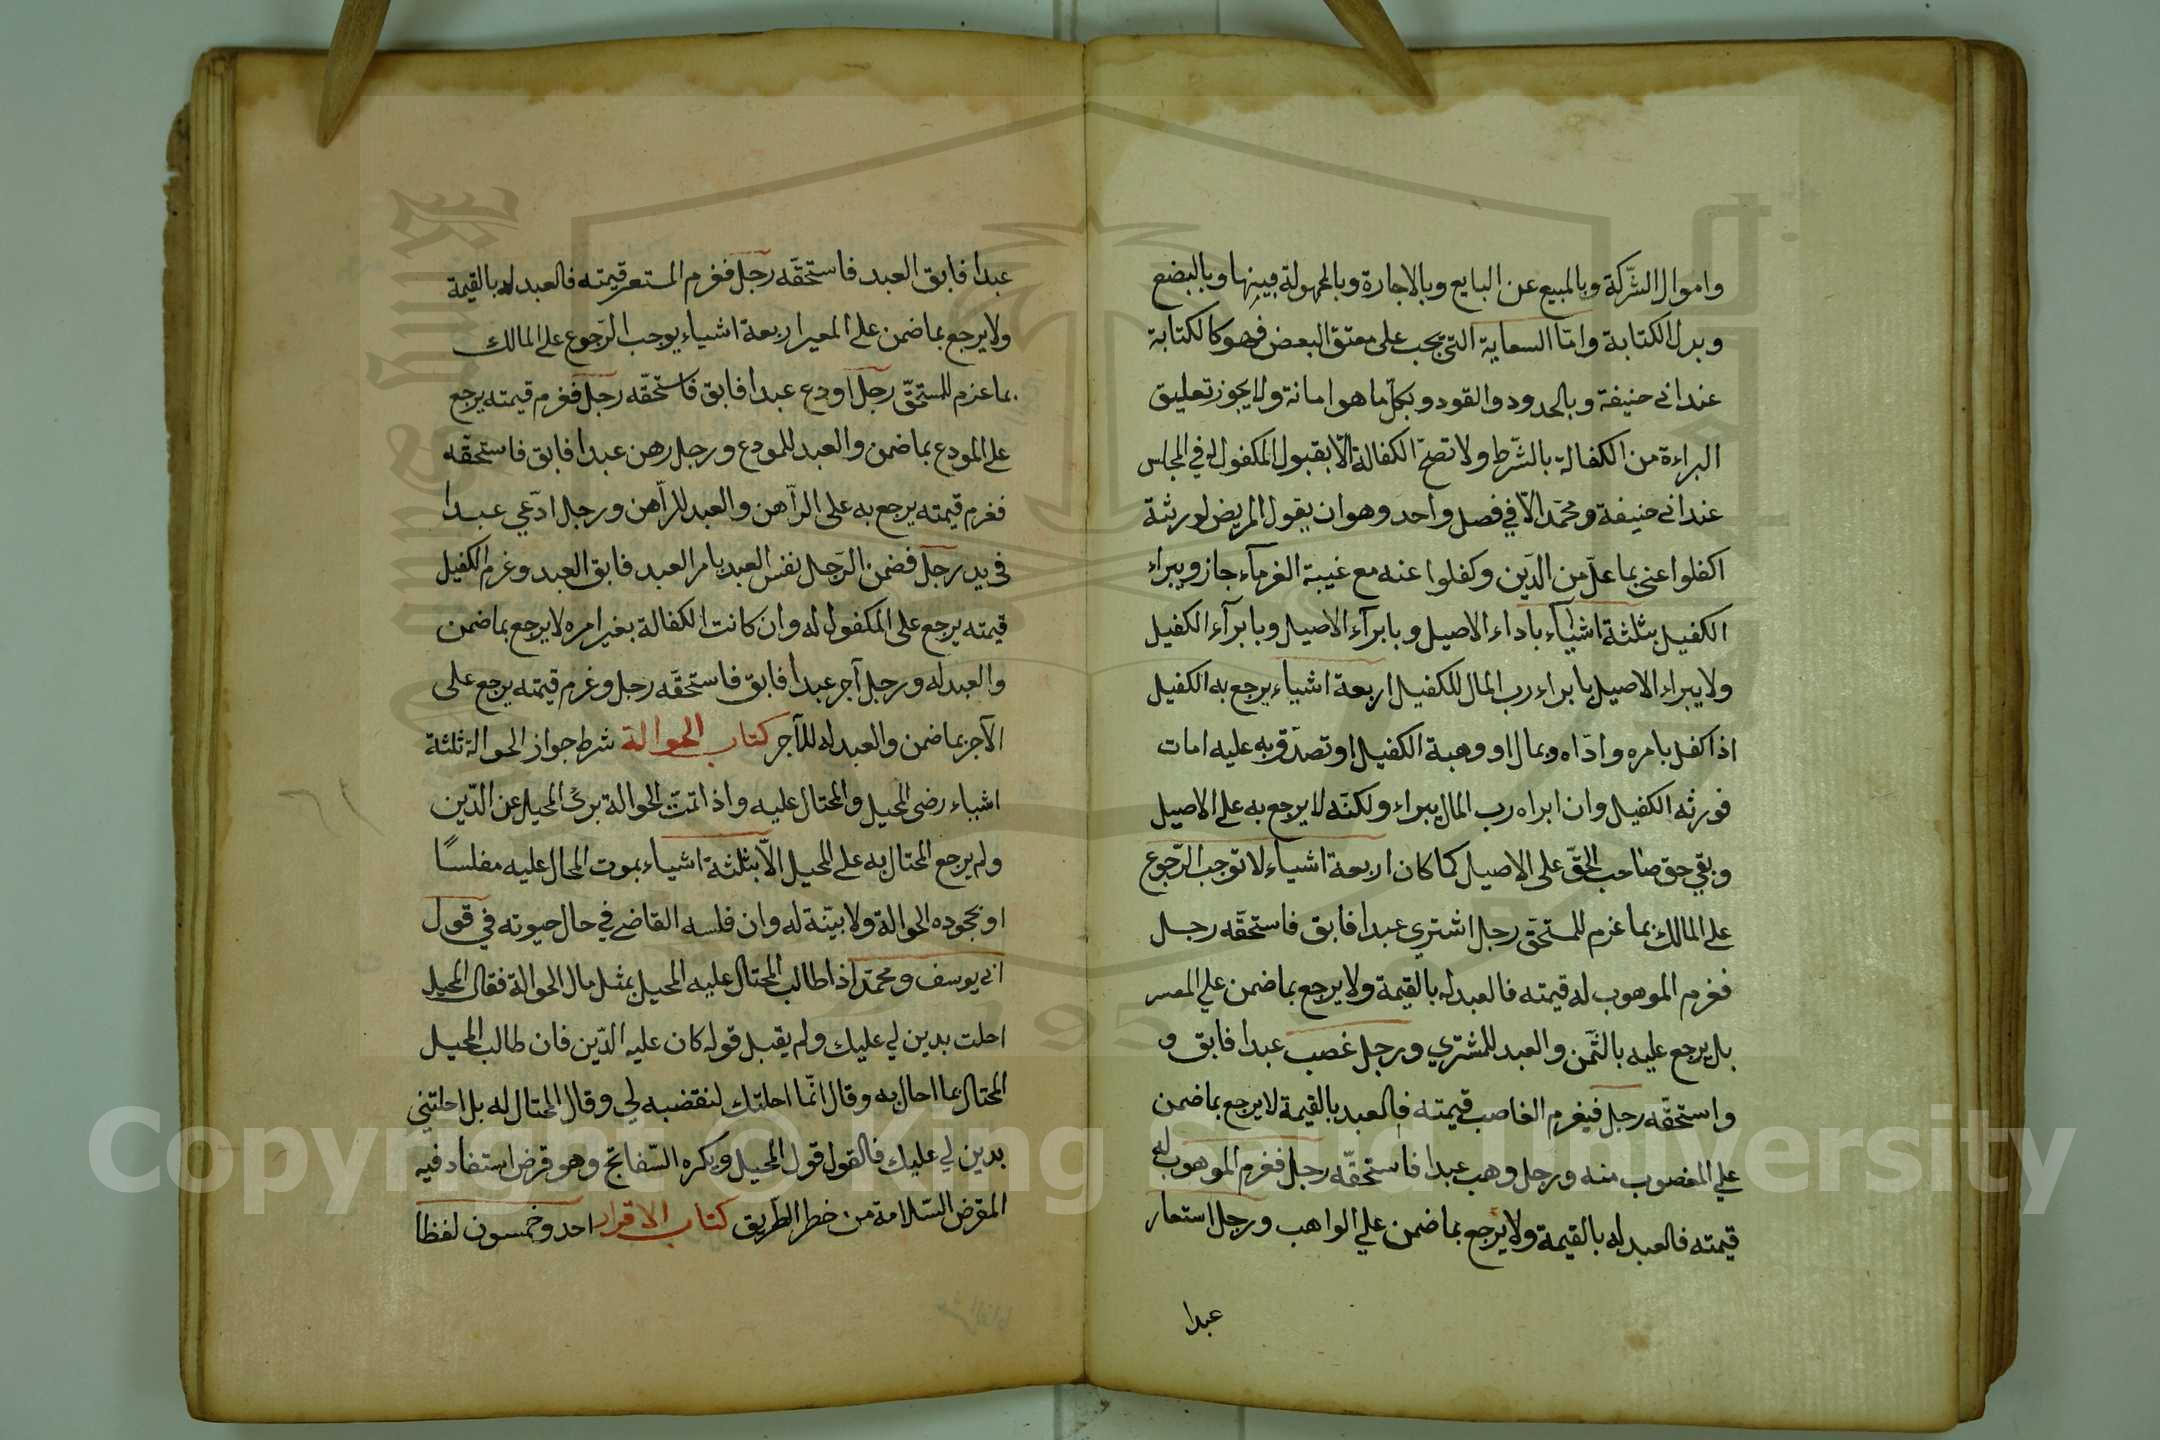 واموال الشّركة وبالمبيع عن البايع وبالاجارة وبالمجهولة فيبينها وبالبضع
وبدل الكتابة وامّا السعاية التى يجب على معتق البعض فهو كالكتابة
عند ابى حنيفة وبالحدود والقود وبكلّ ما هو امانة ولا يجوز تعليق
البراءة من الكفالة بالشّرط ولا تصحّ الكفالة الّا بقبول المكفول له في المجلس
عند ابى حنيفة ومحمّد الّا في فصل واحد وهو ان يقول المريض لورثته
اكفلوا عنى بما علىّ من الدّين وكفلوا عنه مع غيبة الغرمآء جاز ويبراء
الكفيل بثلثة اشيآء باداء الاصيل وبابرآء الاصيل وبابرآء الكفيل
ولا يبراء الاصيل بابراء رب المال للكفيل اربعة اشياء يرجع به الكفيل
اذا كفل بامره وادّاه وبمال او وهبة الكفيل او تصدّق به عليه امات
فورثه الكفيل وان ابراه رب المال يبراء ولكنّه لا يرجع به على الاصيل
وبقي حق صاحب الحقّ على الاصيل كما كان اربعة اشياء لا توجب الرّجوع
على المالك بما غرم للمستحّق رجل اشتري عبدا فابق فاستحقّه رجل
فغرم الموهوب له قيمته فالعبد له بالقيمة ولا يرجع بما ضمن علي
بل يرجع عليه بالثّمن والعبد للمشترّي ورجل غصب عبدا فابق و
واستحقّه رجل فيغرم الغاصب قيمته فالعبد بالقيمة لا يرجع بما ضمن
علي المغصوب منه ورجل وهب عبدا فاستحقّه رجل فغرم الموهوب له
قيمته فالعبد له بالقيمة ولا يرجع بما ضمن علي الواهب ورجل استعار
عبدا
عبدا فابق العبد فاستحقّه رجل فغرم المستعر قيمته فالعبد له بالقيمة
ولا يرجع بما ضمن على المعير اربعة اشياء يوجب الرّجوع على المالك
بما غرم للمستحّق رجل اودع عبدا فابق فاستحقّه رجل فغرم قيمته يرجع
على المودع بما ضمن والعبد للمودع ورجل رهن عبدا فابق فاستحقّه
فغرم قيمته يرجع به على الرّاهن والعبد للرّاهن ورجل ادّعي عبدا
فى يد رجل فضمن الرّجل نفس العبد بامر العبد فابق العبد وغرم الكفيل
قيمته يرجع على المكفول له وان كانت الكفالة بغير امره لا يرجع بما ضمن
والعبد له ورجل آجر عبدا فابق فاستحقّه رجل وغرم قيمته يرجع على
الآجر بما ضمن والعبد له للآجر كتاب الحوالة شرط جواز الحوالة ثلثة
اشياء رضى المحيل والمحتال عليه واذا تمّت الحوالة برئ المحيل عن الدّين
ولم يرجع المحتال به على المحيل الّا بثلثة اشياء بموت المحال عليه مفلسًا
او بجحوده الحوالة ولا بيّنة له وان فلسه القاضي في حال حيوته في قول
ابى يوسف ومحمّد اذا طالب المحتال عليه المحيل بمثل مال الحوالة فقال المحيل
احلت بدين لي عليك ولم يقبل قوله كان عليه الدّين فان طالب المحيل
المحتال بما احال به وقال انّما احلتك لتقضبه لي وقال المحتال له بل احلتني
بدين لي عليك فالقول قول المحيل ويكره السّفاتج وهو قرض استفاد فيه
المقرض السّلامة من خطر الطّريق كتاب الاقرار احد وخمسون لفظا
Copyright © King Saud University
King Saud University
1957